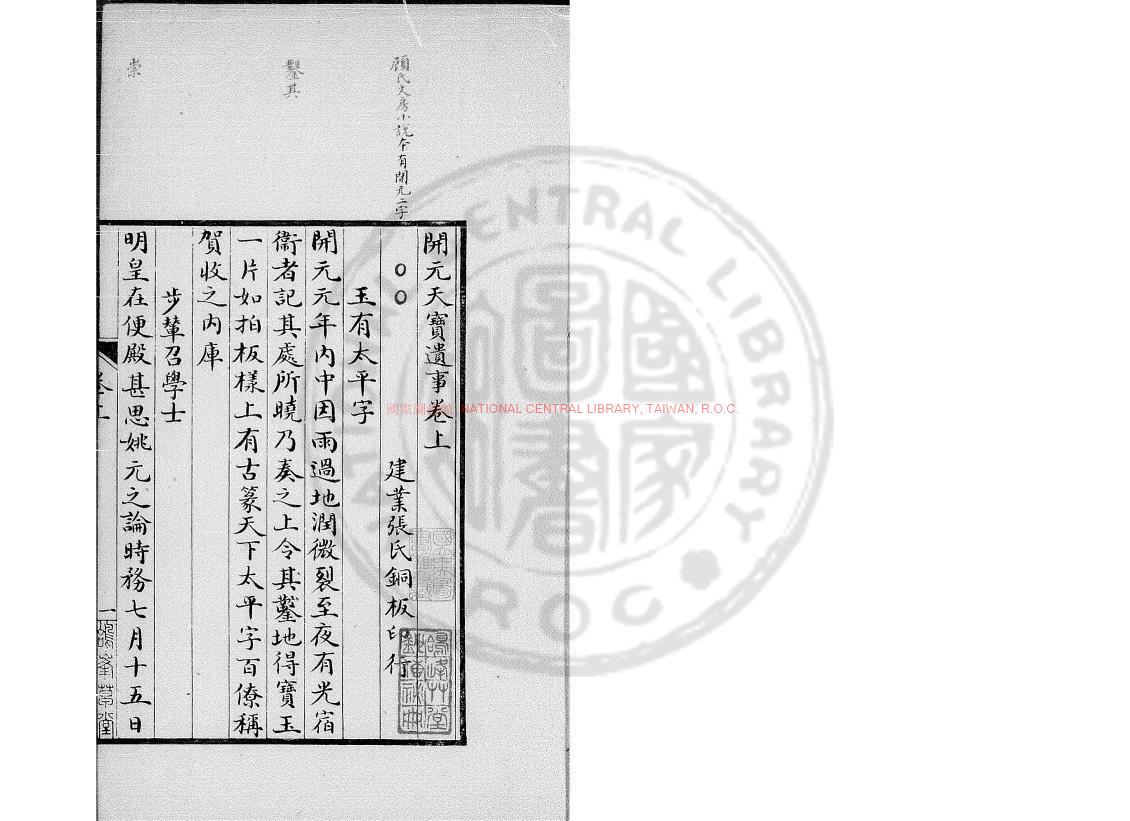 顧氏文房小說本有開元二字
鑿其
崇
開元天寶遺事卷上
○○
建業張氏銅板印行
玉有太平字
開元元年內中因雨過地潤微裂至夜有光宿
衞者記其處所曉乃奏之上令其鑿地得寶玉
一片如拍板樣上有古篆天下太平字百僚稱
賀收之內庫
步輦召學士
明皇在便殿甚思姚元之論時務七月十五日
卷上
一
鳴峯草堂
國家圖書館 NATIONAL CENTRAL LIBRARY, TAIWAN, R.O.C.
NATIONAL CENTRAL LIBRARY
R.O.C.
國家圖書